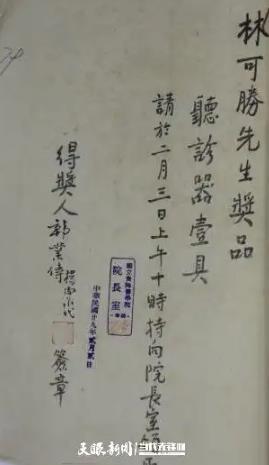 林可勝先生獎品
聽診器壹具
請於二月三日上午十時持向院長室
國立貴陽醫學院
院長室
中華民國廿九年貳月貳日
得獎人郭業 代 簽章
天眼新闻
当代先锋网